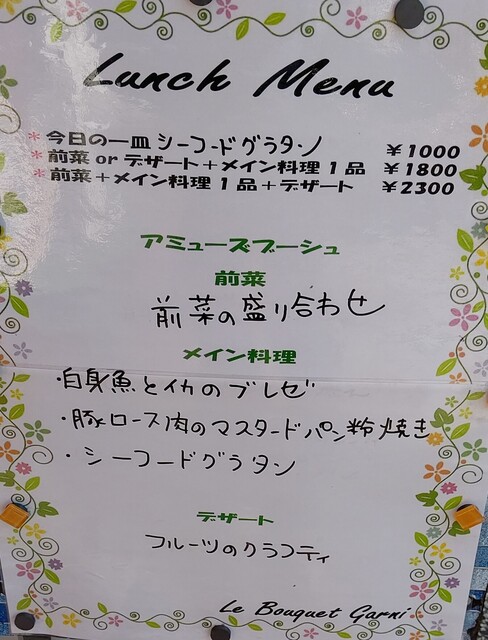 Lunch Menu
*今日の一皿 シーフードグラタン ￥1000
*前菜 or デザート+メイン料理1品 ￥1800
*前菜+メイン料理1品+デザート ￥2300
アミューズブーシュ
前菜
前菜の盛り合わせ
メイン料理
・白身魚とイカのブレゼ
・豚ロース肉のマスタードパン粉焼き
・シーフードグラタン
デザート
フルーツのクラフティ
Le Bouquet Garni